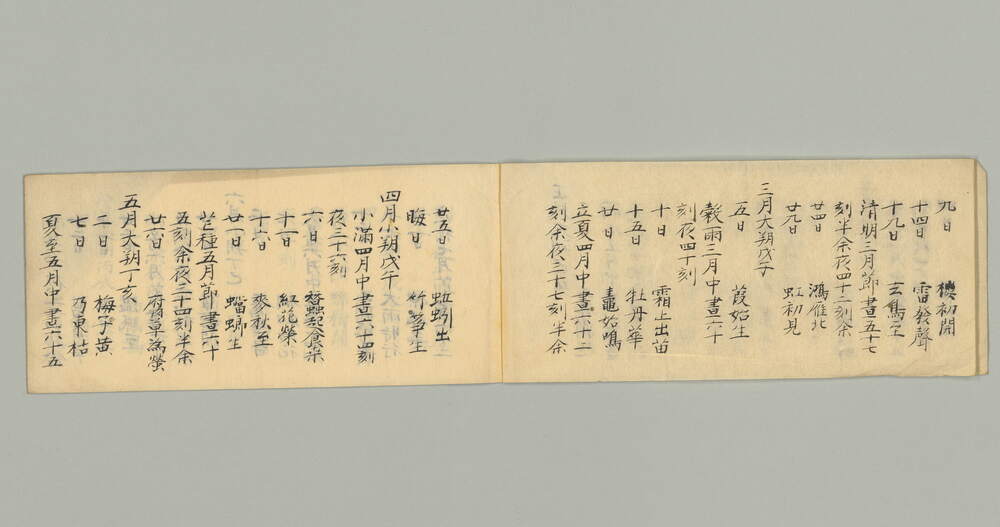 九日　櫻初開
十四日　雷發聲
十九日　玄鳥至
清明三月節晝五十七
刻半余夜四十二刻余
廿四日　鴻雁北
廿九日　虹初見
三月大朔戊子
五日　葭始生
穀雨三月中晝六十
刻夜四十刻
十日　霜止出苗
十五日　牡丹華
廿日　鼃始鳴
立夏四月中晝六十二
刻余夜三十七刻半余
廿五日　蚯蚓出
晦日　竹笋生
四月小朔戊午
小滿四月中晝六十四刻
夜三十六刻
六日　蠶起食桒
十一日　紅花榮
十六日　麥秋至
廿一日　蟷螂生
芒種五月節晝六十
五刻余夜三十四刻半余
廿六日　腐草為螢
五月大朔丁亥
二日　梅子黄
七日　乃東枯
夏至五月中晝六十五